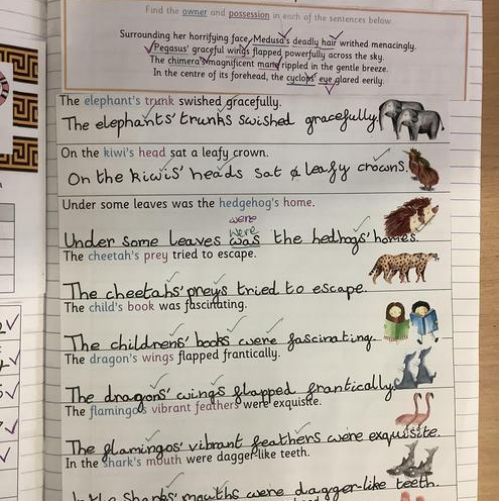 Find the owner and possession in each of the sentences below.
Surrounding her horrifying face, Medusa's deadly hair writhed menacingly.
Pegasus' graceful wings flapped powerfully across the sky.
The chimera's magnificent mane rippled in the gentle breeze.
In the centre of its forehead, the cyclops' eye glared eerily.
The elephant's trunk swished gracefully.
The elephants' trunks swished gracefully.
On the kiwi's head sat a leafy crown.
On the kiwis' heads sat a leafy crowns.
Under some leaves was the hedgehog's home.
were
were
Under some leaves was the hedhogs' homes.
The cheetah's prey tried to escape.
The cheetahs' preys tried to escape.
The child's book was fascinating.
The childrens' books were fascinating.
The dragon's wings flapped frantically.
The dragons' wings flapped frantically.
The flamingo's vibrant feathers were exquisite.
The flamingos' vibrant feathers were exquisite.
In the shark's mouth were dagger-like teeth.
In the sharks' mouths were dagger-like teeth.